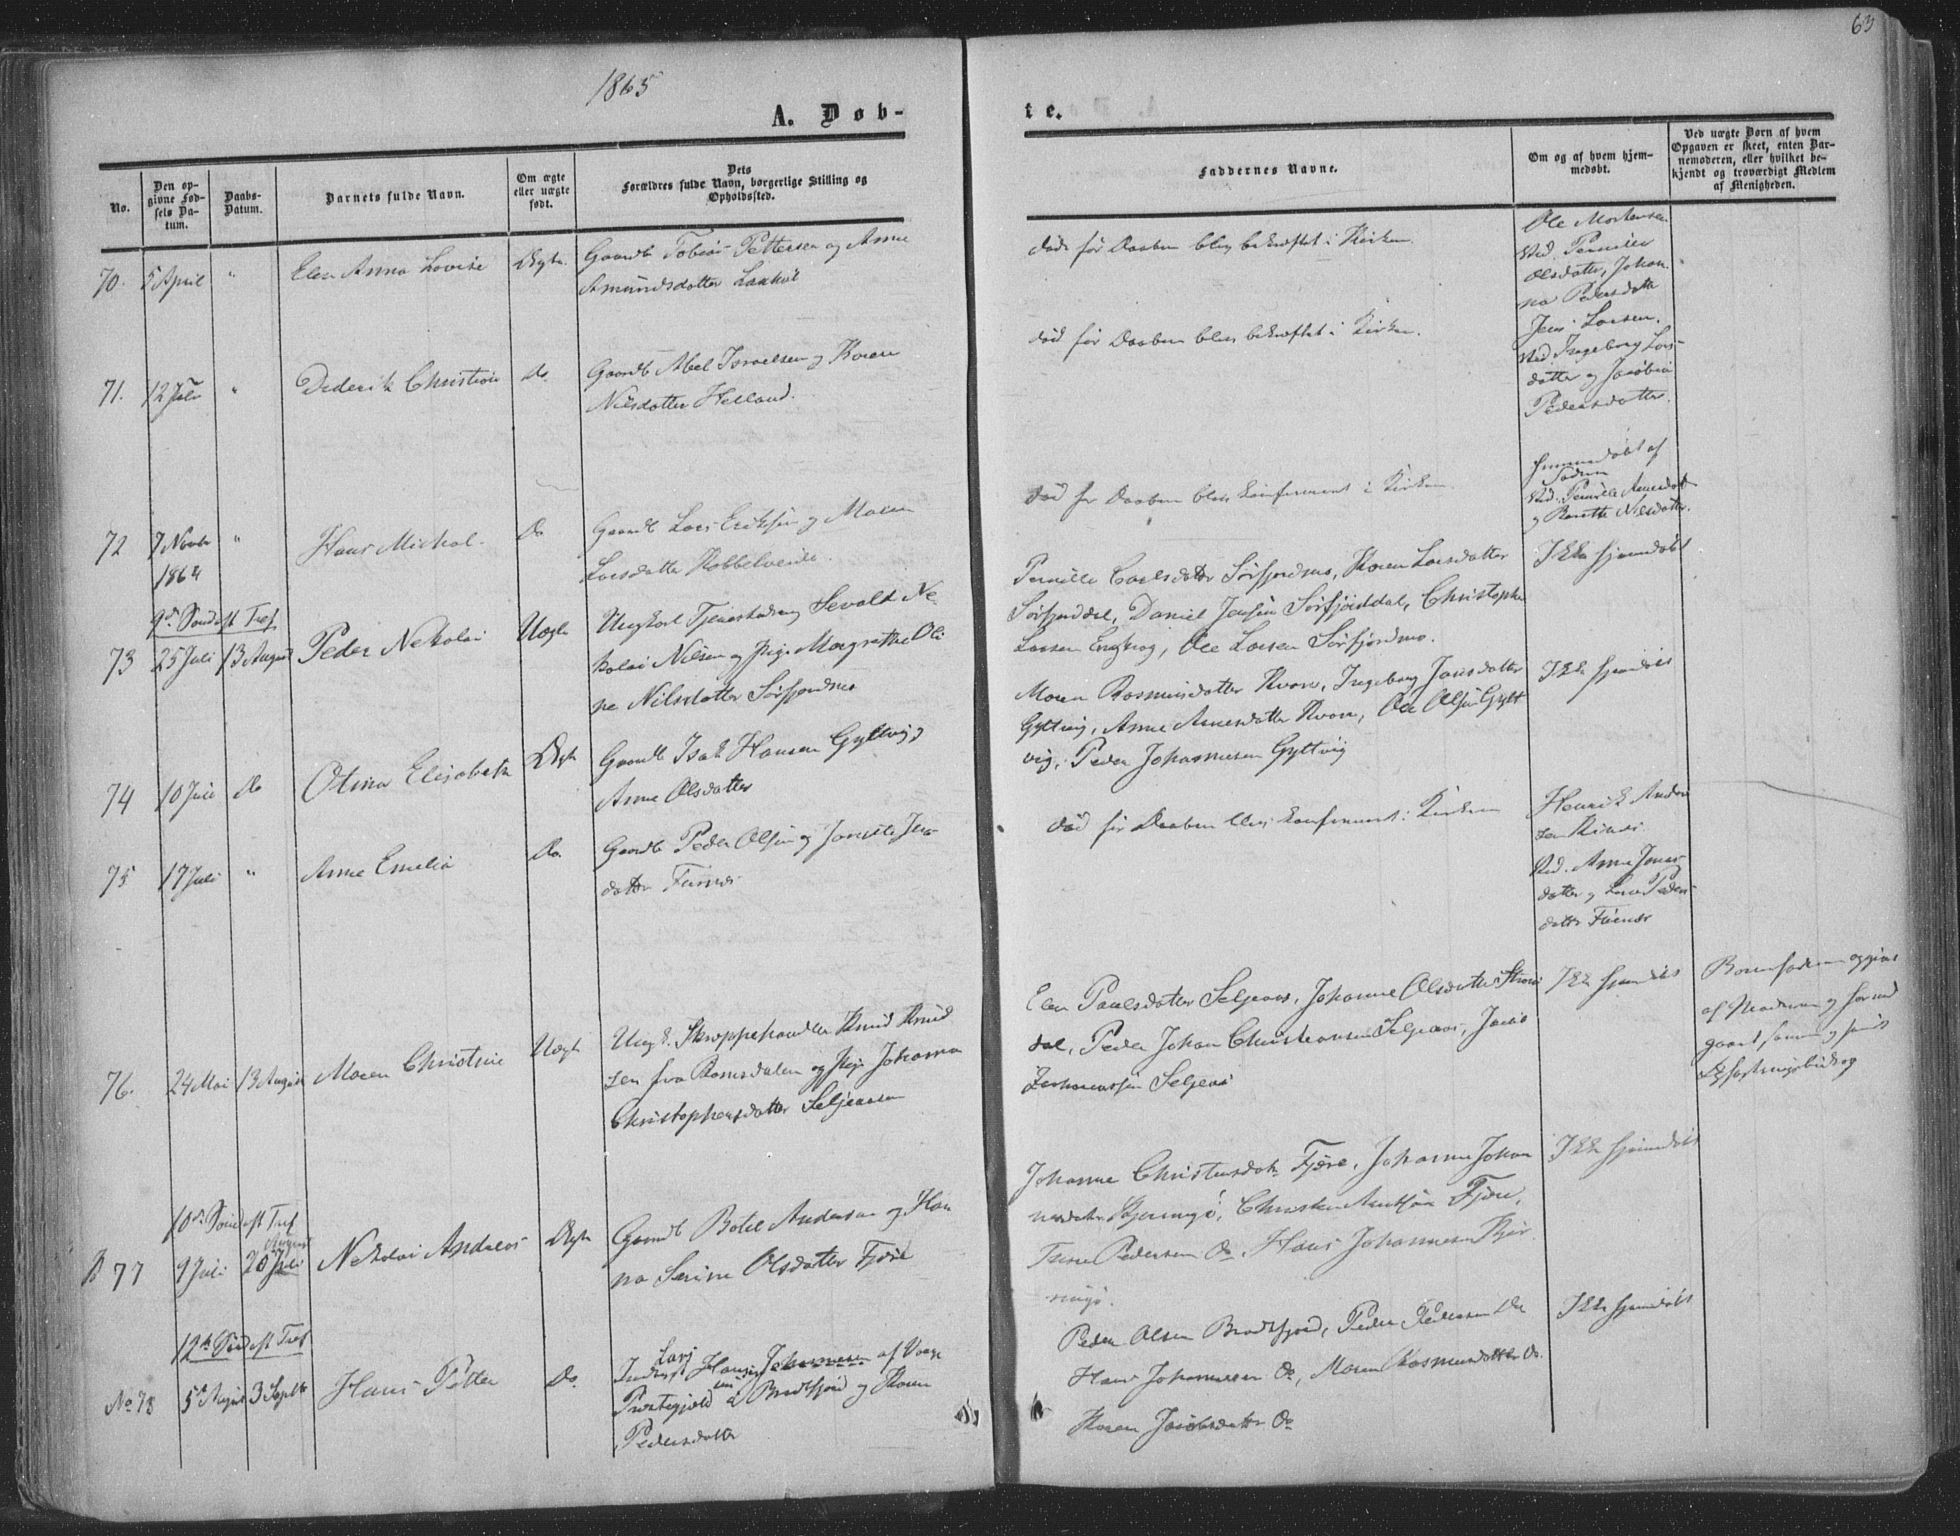 63
1865
A. Døb-
te.
No.
Den op-
givne Fød-
sels Da-
tum.
Daabs-
Datum.
Barnets fulde Navn.
Om ægte
eller uægte
født.
Dets
Forældres fulde Navn, borgerlige Stilling og
Opholdssted.
Faddernes Navne.
Om og af hvem hjem-
medøbt.
Ved uægte Børn af hvem
Opgaven er skeet, enten Bar-
nemoderen, eller hvilket be-
kjendt og troværdigt Medlem
af Menigheden.
70. 5 April " Elen Anna Lovise Ægte
Gaardb Tobias Pettersen og Anne
Amundsdatter Laxhol
død før Daaben blev bekræftet i Kirken.
Ole Mortensen
Ved. Pernille
Olsdatter, Johan-
na Pedersdatte
71. 12 Juli " Dederik Christian do.
Gaardb Abel Israelsen og Karen
Nilsdatter Helland.
død før Daaben blev bekræftet i Kirken.
Jens Larsen.
Ved. Ingeborg Lars-
datter og Jacobia
Pedersdatter.
72 7 Novbr " Hans Michal. Do
1864
Gaardb Lars Eriksen og Maren
Larsdatter Kobbelveide.
død før Daaben blev konfirmert i Kirken.
hjemmedøbt af
Faderen
Ved. Pernille Arnesdatt
og Berethe Nilsdatter.
9de Sønd eft Tref
73 25 Juli 13 August Peder Nekolai Uægte
Ungkarl Tjenestedreng Sevald Ne-
kolai Nilsen og Pige Margrethe Oli-
ne Nilsdatter Sørfjordmo
Pernille Carlsdatter Sørfjordmo, Karen Larsdatter
Sørfjorddal, Daniel Jensen Sørfjorddal, Christopher
Larsen Engkrog, Ole Larsen Sørfjordmo.
Ikke hjemdøbt
74 10 Juli do Otina Elisabeth Ægte
Gaardb Isak Hansen Gyltvig og
Anne Olsdatter
Maren Rasmusdatter Kvarv, Ingeborg Jansdatter
Gyltvig, Anne Arnesdatter Kvarv, Ole Olsen Gylt
vig, Peder Johannesen Gyltvig
Ikke hjemdøbt
75 17 Juli " Anne Emelia Do.
Gaardb Peder Olsen og Jonette Jens-
datter
død før Daaben blev konfirmert i Kirken
Henrik Ander
sen
Ved. Anne Jens-
datter og Peders-
datter
76. 24 Mai 13 August Maren Christine Uægte
Ungk. Skreppehandler Knud Knud
sen fra Romsdalen og Pige Johanna
Christophersdatter Seljeaasen
Elen Paulsdatter Seljeaas, Johanne Olsdatter
dal, Peder Johan Christiansen Seljeaas, Jacob
Zachariassen Seljeaas
Ikke hjemdøbt
Barnefaderen opgivet
af Moderen og
10de Sønd eft Tref
August
77 9 Juli 20 Juli Nekolai Andreas Ægte
Gaardb Botel Andersen og Han
na Serine Olsdatter Fjære
Johanne Christensdatr Fjære, Johanne Johan
nesdatr Kjerringø, Christen Fjære,
Pedersen do, Hans Johannesen Kjer-
ringø.
Ikke hjemdøbt
12te Sønd eft Tref
No 78 5te August 3 Septbr Hans Petter Do.
Lars
Inderst Hansen Johannesen af
Præstegjeld Brodtfjord og Karen
Pedersdatter
Peder Olsen Brodtfjord, Peder Pedersen do
Hans Johannesen do, Maren Rasmusdatter do.
Karen Jacobsdatter do
Ikke hjemdøbt